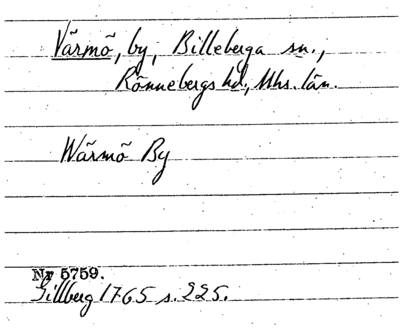 Värmö, by, Billeberga sn.,
Rönnebergs hd, Mhs. län.
Wärmö By
Nr 5759.
Gillberg 1765 s. 225.